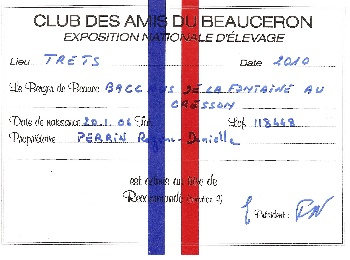 CLUB DES AMIS DU BEAUCERON
EXPOSITION NATIONALE D'ÉLEVAGE
Lieu TRETS Date 2010
Le Berger de Beauce BACCHUS DE LA FONTAINE AU
CRESSON
Date de naissance 20.1.06 Lof 118448
Propriétaire PERRIN Danielle
est admis au titre de
Recommandé
Président :